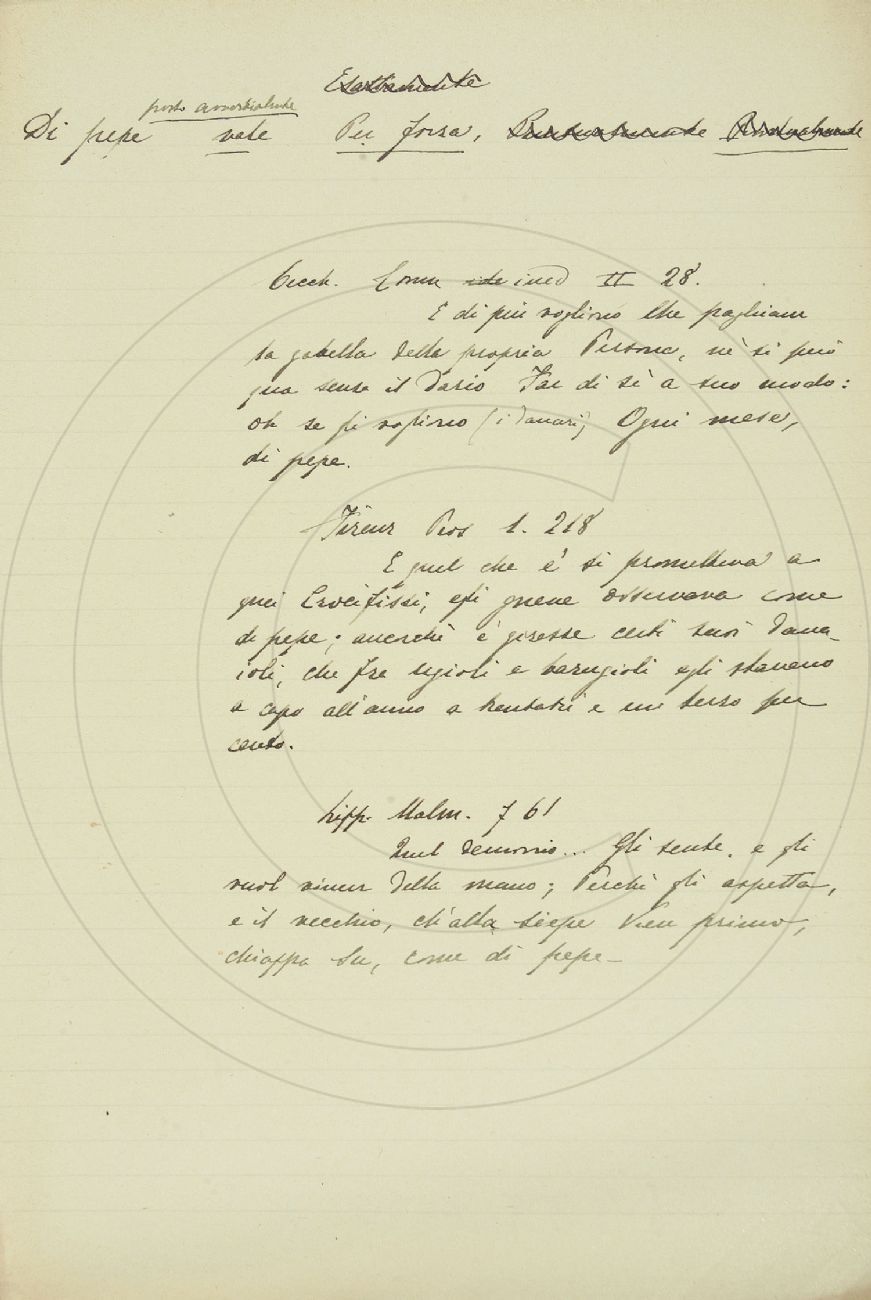 Esattamente
posto avverbialmente
Di pepe vale Per forza, Puntualmente
Cecch. Comm. ined II 28.
E di più vogliono che paghiam
la gabella della propria Persona, nè si può
qua senza il Dazio Far di sè a suo modo:
oh se gli vogliono (i danari) Ogni mese,
di pepe.
Firenz Pros 1. 218
E quel che e' si prometteva a
quei Crocifissi, egli gnene osservava come
di pepe; ancorchè e' gesse certi suoi dana-
ioli, che fra ugioli e barugioli egli stavano
a capo all'anno a trentatrè e un terzo per
cento.
Lipp. Malm. 7 61
Quel demonio... Gli sente, e gli
vuol vincer della mano; Perchè gli aspetta,
e il vecchio, ch'alla siepe Vien primo,
chiappa su, come di pepe